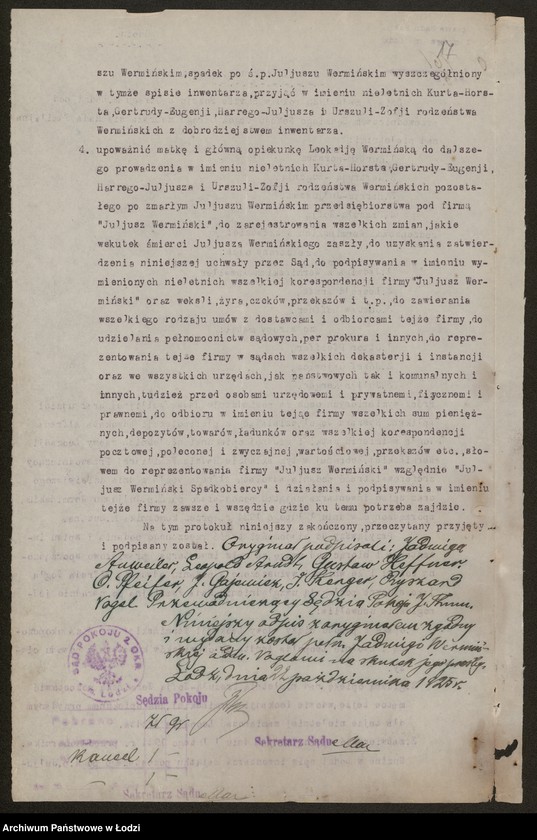 17
szu Wermińskim,spadek po ś.p.Juljuszu Wermińskim wyszczególniony
w tymże spisie inwentarza,przyjąć w imieniu nieletnich Kurta-Hors-
ta,Gertrudy-Eugenji,Harrego-Juljusza i Urszuli-Zofji rodzeństwa
Wermińskich z dobrodziejstwem inwentarza.
4. upoważnić matkę i główną opiekunkę Leokadję Wermińską do dalsze-
go prowadzenia w imieniu nieletnich Kurta-Horsta,Gertrudy-Eugenji,
Harrego-Juljusza i Urszuli-Zofji rodzeństwa Wermińskich pozosta-
łego po zmarłym Juljuszu Wermińskim przedsiębiorstwa pod firmą
"Juljusz Wermiński",do zarejestrowania wszelkich zmian,jakie
wskutek śmierci Juljusza Wermińskiego zaszły,do uzyskania zatwier-
dzenia niniejszej uchwały przez Sąd,do podpisywania w imieniu wy-
mienionych nieletnich wszelkiej korespondencji firmy"Juljusz Wer-
miński" oraz weksli,żyra,czeków,przekazów i t.p.,do zawierania
wszelkiego rodzaju umów z dostawcami i odbiorcami tejże firmy,do
udzielania pełnomocnictw sądowych,per prokura i innych,do repre-
zentowania tejże firmy w sądach wszelkich dekasterji i instancji
oraz we wszystkich urzędach,jak państwowych tak i komunalnych i
innych,tudzież przed osobami urzędowemi i prywatnemi,fizycznemi i
prawnemi,do odbioru w imieniu tejże firmy wszelkich sum pienięż-
nych,depozytów,towarów,ładunków oraz wszelkiej korespondencji
pocztowej,poleconej i zwyczajnej,wartościowej,przekazów etc.,sło-
wem do reprezentowania firmy "Juljusz Wermiński" względnie "Jul-
jusz Wermiński Spadkobiercy" i działania i podpisywania w imieniu
tejże firmy zawsze i wszędzie gdzie ku temu potrzeba zajdzie.
Na tym protokuł niniejszy zakończony,przeczytany przyjęty
i podpisany został. Oryginał podpisali: Jadwiga
Anweiler, Leopold Arndt, Gustaw Heffner,
O. Pfeifer, J. Gajewicz, Ryszard
Vogel Przewodniczący Sędzia Pokoju
Niniejszy odpis z oryginałem zgodny
i wydany został pełn. Jadwigi Wermiń-
skiej adw. Voglowi na skutek jego prośby.
Łódź, dnia października 1925 r.
SĄD POKOJU 2 OKR
w Łodzi
Sędzia Pokoju
75 gr
Sekretarz Sądu
Kancel 1 -
1 -
Sekretarz Sądu
Archiwum Państwowe w Łodzi